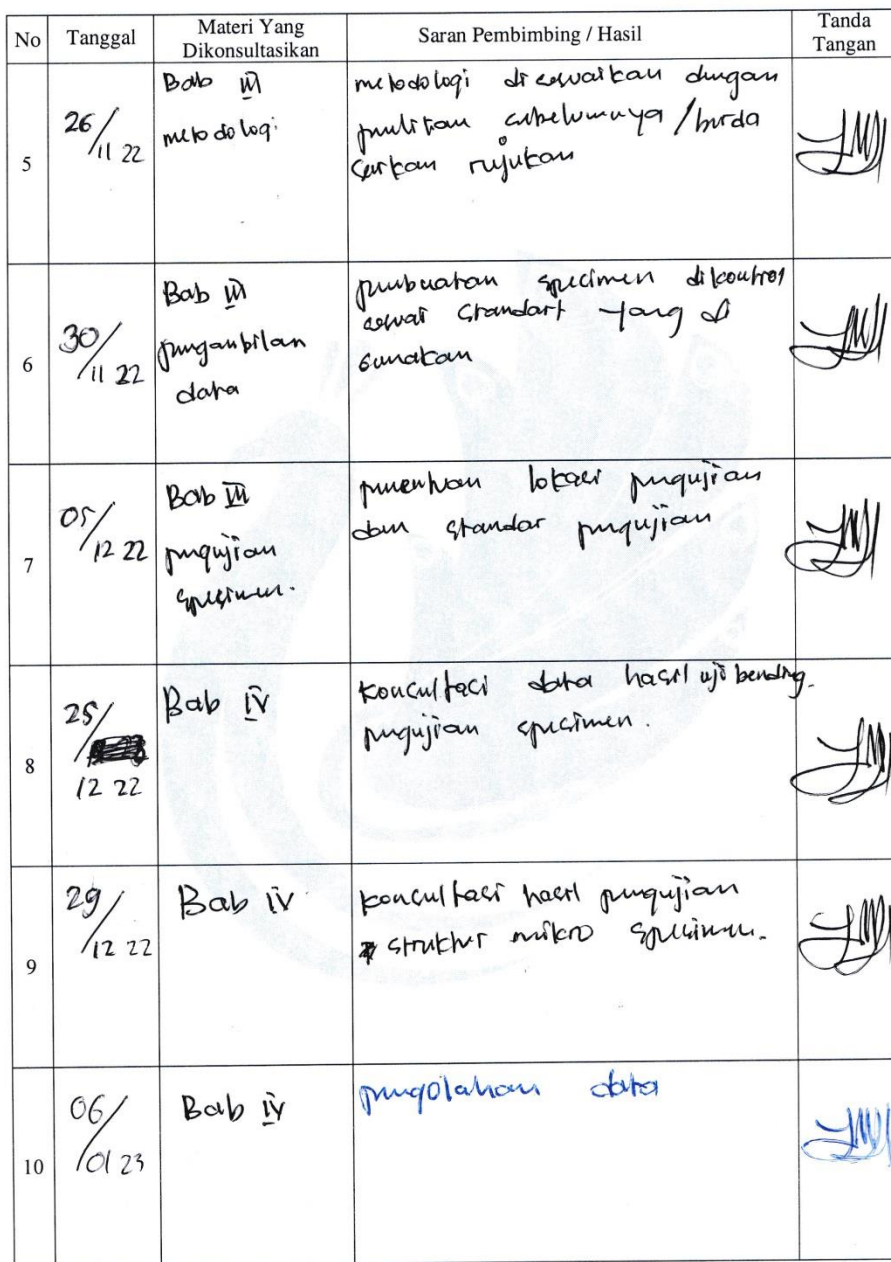 No Tanggal Materi Yang Dikonsultasikan Saran Pembimbing / Hasil Tanda Tangan
5 26/11 22 Bab III metodologi disesuaikan dengan
metodologi penelitian sebelumnya / berda
sarkan rujukan
6 30/11 22 Bab III pembuatan specimen dikontrol
pengambilan sesuai standart yang di
data gunakan
7 05/12 22 Bab III penentuan lokasi pengujian
pengujian dan standar pengujian
specimen.
8 25/12 22 Bab IV konsultasi data hasil uji bending.
pengujian specimen.
9 29/12 22 Bab IV konsultasi hasil pengujian
struktur mikro specimen.
10 06/01 23 Bab IV pengolahan data